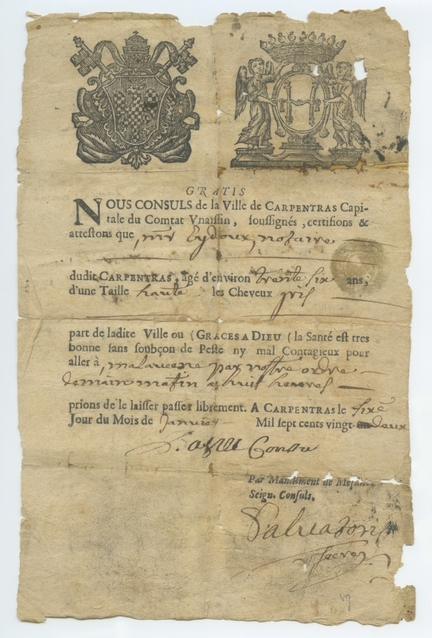 GRATIS
NOUS CONSULS de la Ville de CARPENTRAS Capi-
tale du Comtat Vnaissin, soussignés, certifions &
attestons que mr Eydoux, nottaire
dudit CARPENTRAS, âgé d'environ trante six ans,
d'une Taille haute les Cheveux gris
part de ladite Ville ou (GRACES A DIEU ( la Santé est tres
bonne sans soubçon de Peste ny mal Contagieux pour
aller à malaucene par nostre ordre
demain matin a huit heures
prions de le laisser passer librement. A CARPENTRAS le sixe
Jour du Mois de Janvier Mil sept cents vingt deux
Consu
Par Mandement de
Seign. Consuls.
Salvatoris
Secret